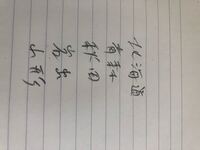 北海道
青森
秋田
山形